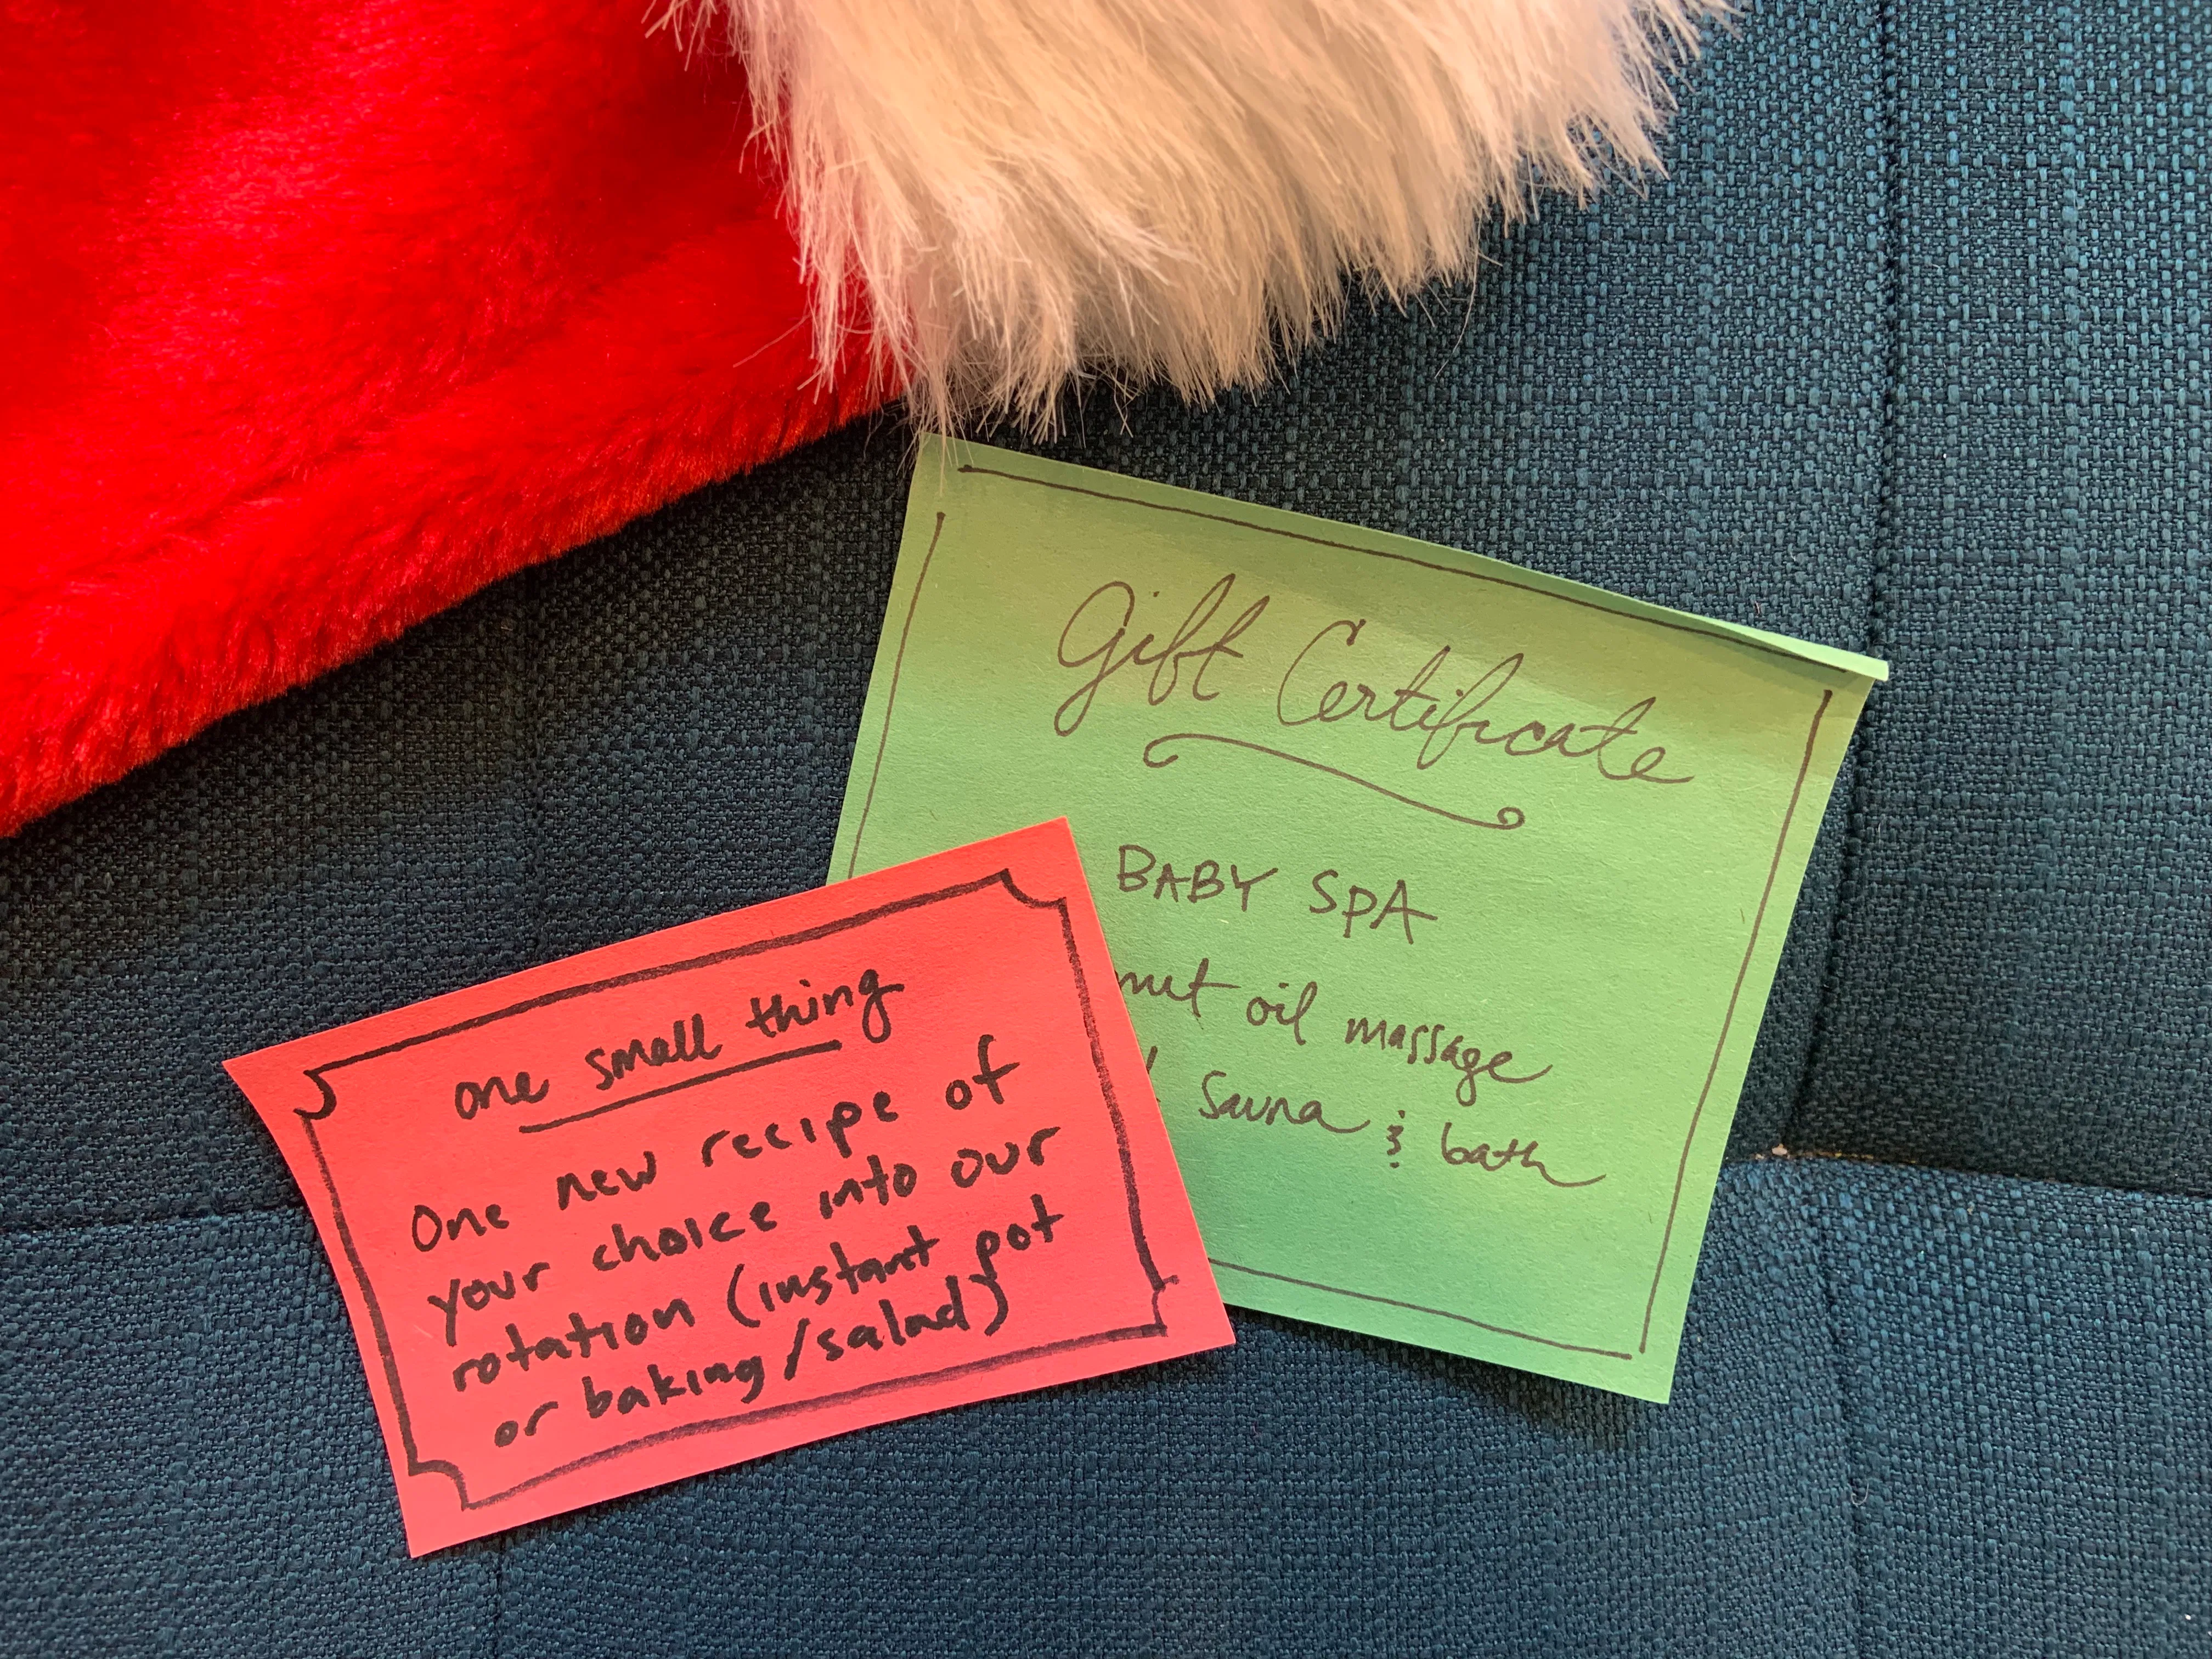 Gift Certificate
BABY SPA
oil massage
Sauna & bath
one small thing
One new recipe of
your choice into our
rotation (instant pot
or baking/salad)